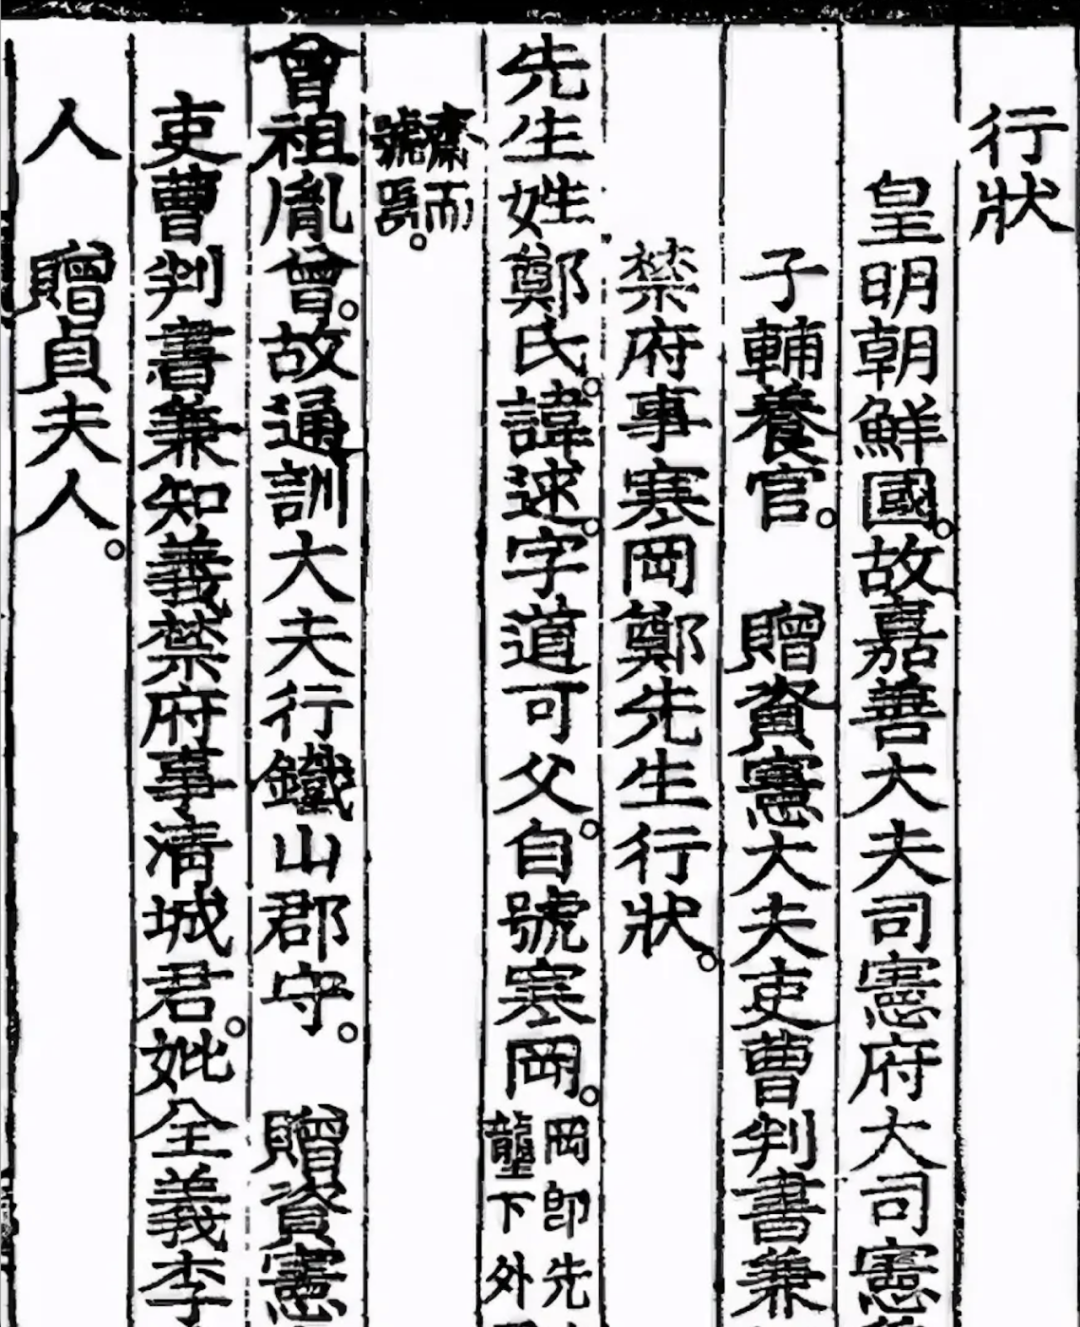 行狀
皇明朝鮮國。故嘉善大夫司憲府大司憲
子輔養官。 贈資憲大夫吏曹判書兼
禁府事寒岡鄭先生行狀。
先生姓鄭氏。諱逑。字道可父。自號寒岡。岡卽先
壟下外
齋而
號焉。
曾祖胤曾。故通訓大夫行鐵山郡守。 贈資憲
吏曹判書兼知義禁府事淸城君。妣全義李
人 贈貞夫人。